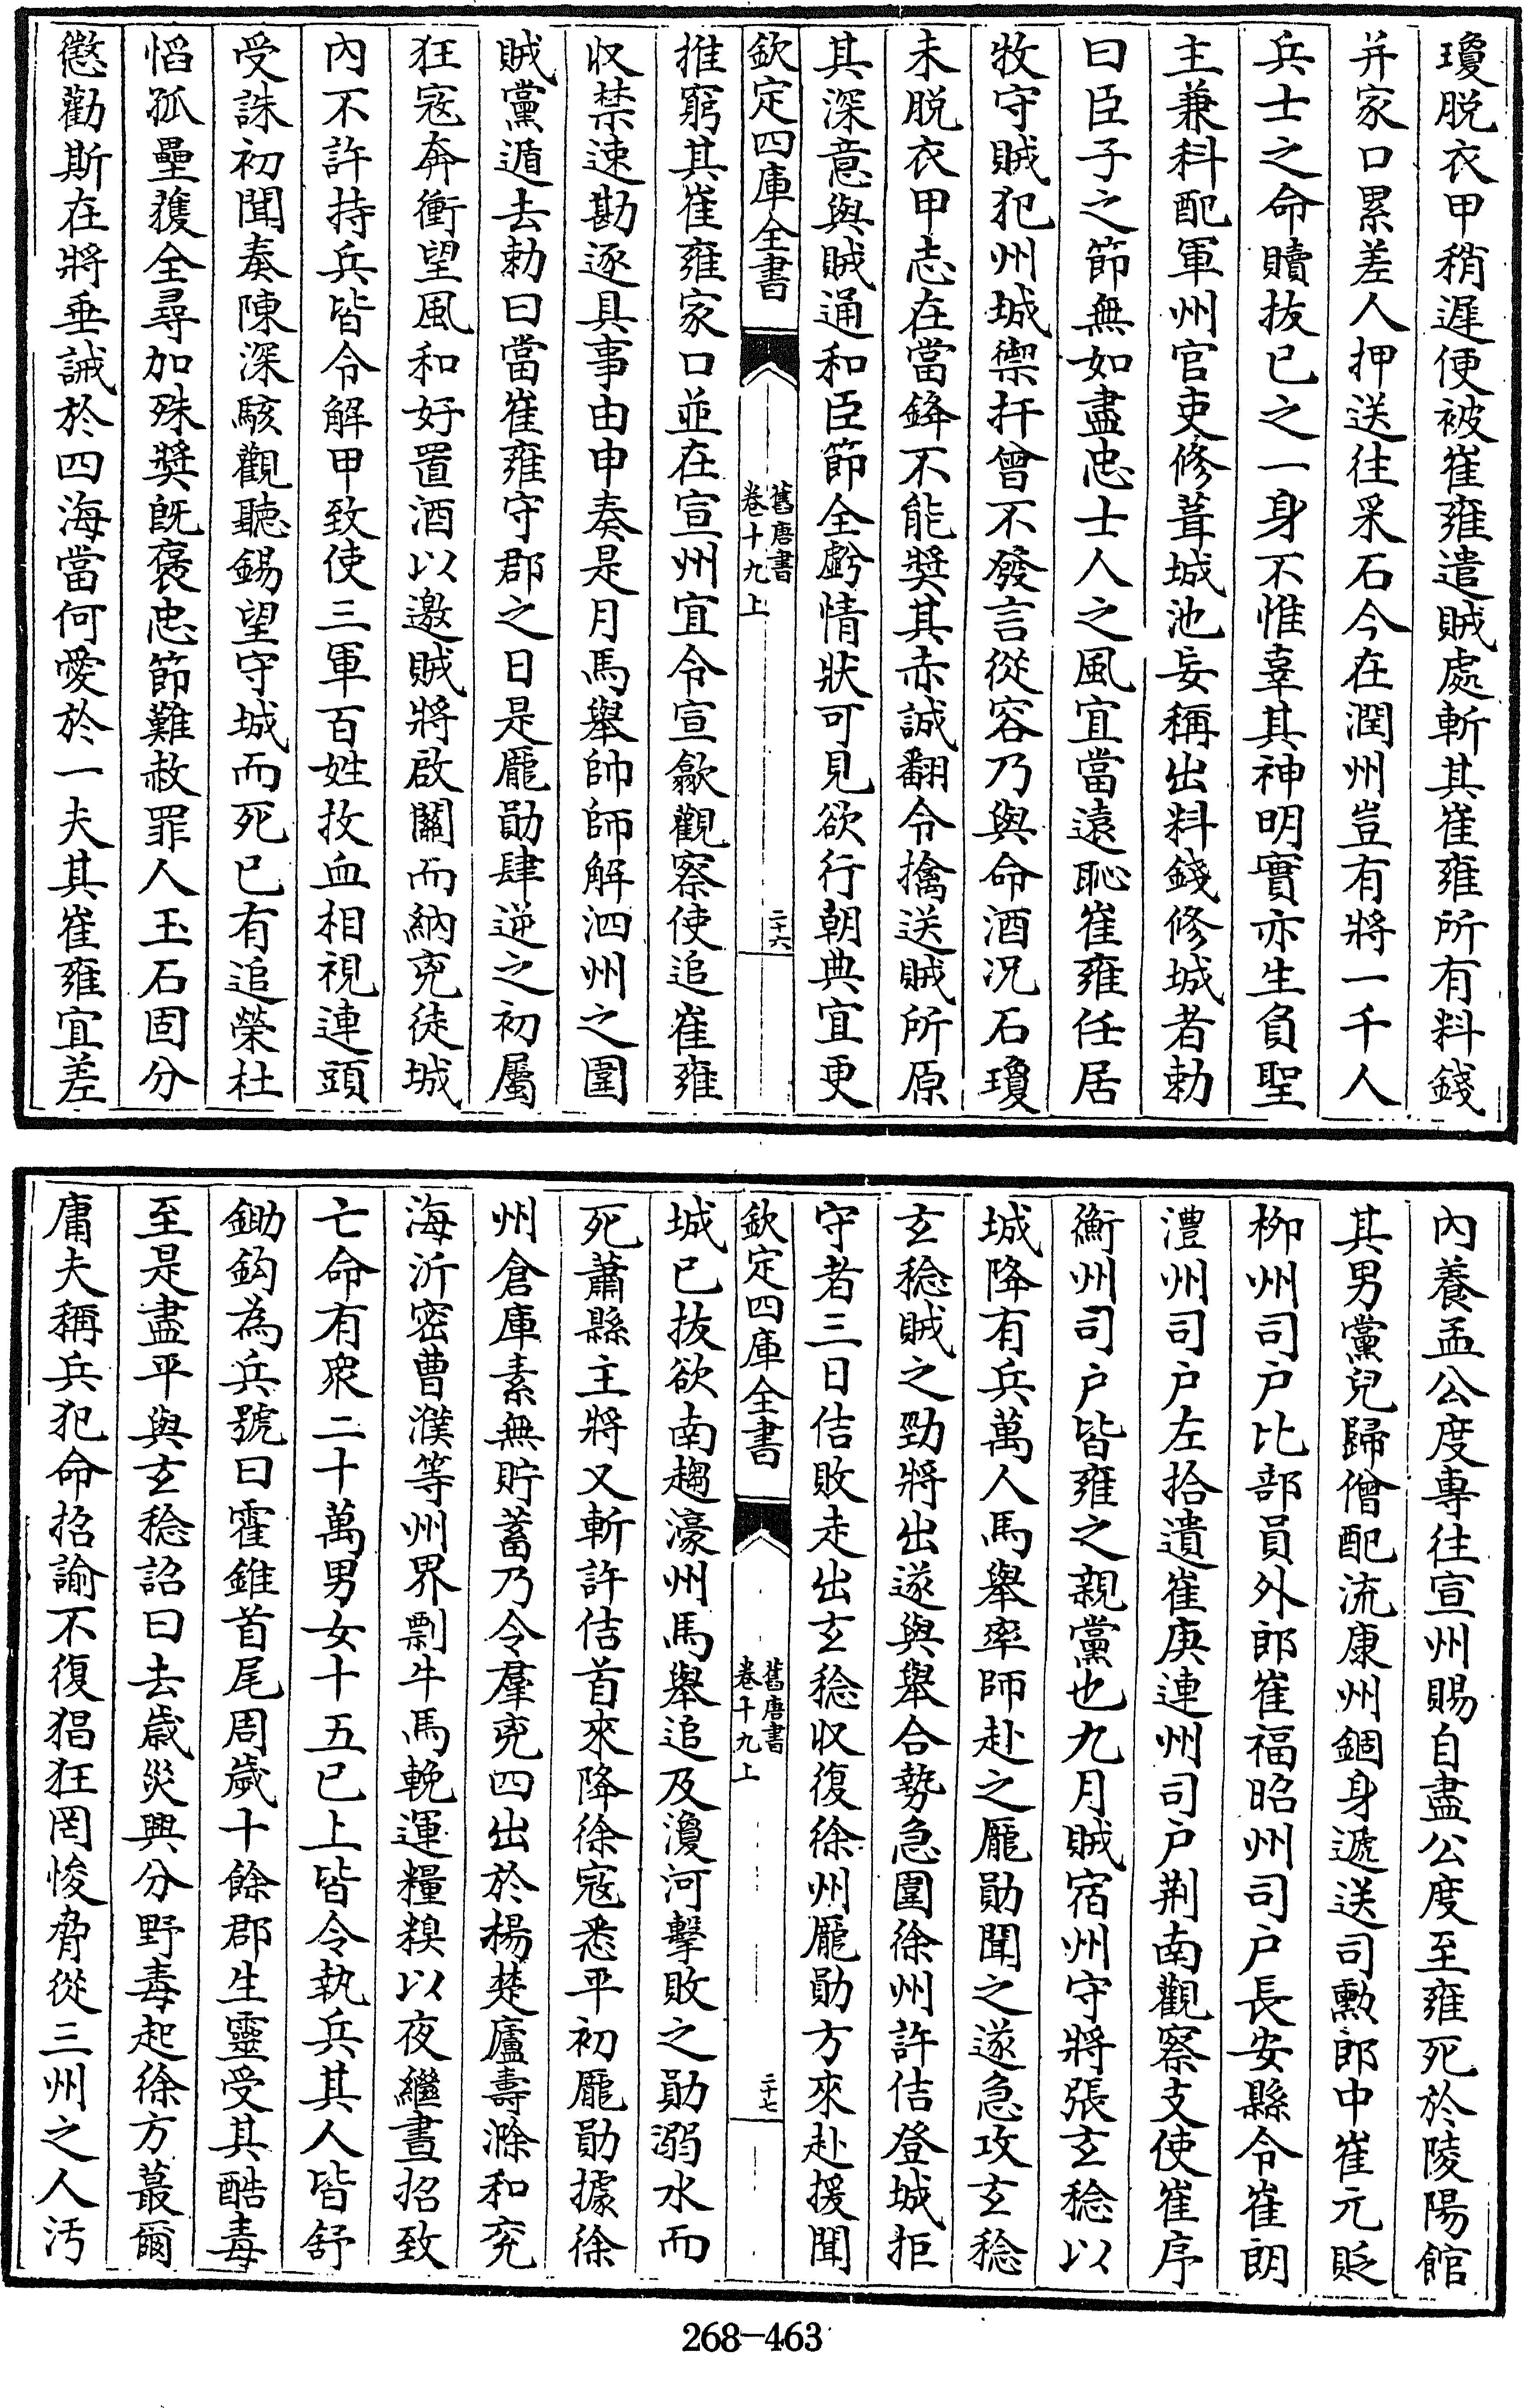 瓊脱衣甲稍遲便被崔雍遣賊處斬其崔雍所有料錢
并家口累差人押送往采石今在潤州豈有將一千人
兵士之命贖拔已之一身不惟辜其神明實亦生負聖
主兼科配軍州官吏修葺城池妄稱出料錢修城者勅
曰臣子之節無如盡忠士人之風宜當遠恥崔雍任居
牧守賊犯州城禦扞曾不發言從容乃與命酒况石瓊
未脱衣甲志在當鋒不能奬其赤誠翻令擒送賊所原
其深意與賊通和臣節全虧情狀可見欲行朝典宜更
欽定四庫全書
舊唐書
卷十九上
二十六
推窮其崔雍家口並在宣州宜令宣歙觀察使追崔雍
収禁速勘逐具事由申奏是月馬舉帥師解泗州之圍
賊黨遁去勅曰當崔雍守郡之日是龎勛肆逆之初屬
狂寇奔衝望風和好置酒以邀賊將啟關而納兇徒城
内不許持兵皆令解甲致使三軍百姓抆血相視連頭
受誅初聞奏陳深駭觀聽錫望守城而死已有追榮杜
慆孤壘獲全尋加殊奬既褒忠節難赦罪人玉石固分
懲勸斯在將垂誡於四海當何愛於一夫其崔雍宜差
内養孟公度專往宣州賜自盡公度至雍死於陵陽館
其男黨兒歸僧配流康州錮身遞送司勲郎中崔元貶
柳州司户比部員外郎崔福昭州司户長安縣令崔朗
澧州司户左拾遺崔庚連州司户荆南觀察支使崔序
衡州司户皆雍之親黨也九月賊宿州守將張玄稔以
城降有兵萬人馬舉率師赴之龎勛聞之遂急攻玄稔
玄稔賊之勁將出遂與舉合勢急圍徐州許佶登城拒
守者三日佶敗走出玄稔収復徐州龎勛方來赴援聞
欽定四庫全書
舊唐書
卷十九上
二十七
城已拔欲南趨濠州馬舉追及渙河擊敗之勛溺水而
死蕭縣主將又斬許佶首來降徐寇悉平初龎勛據徐
州倉庫素無貯蓄乃令羣兇四出於楊楚廬壽滁和兖
海沂密曹濮等州界剽牛馬輓運糧糗以夜繼晝招致
亡命有衆二十萬男女十五已上皆令執兵其人皆舒
鋤鈎為兵號曰霍錐首尾周歲十餘郡生靈受其酷毒
至是盡平與玄稔詔曰去歲災興分野毒起徐方蕞爾
庸夫稱兵犯命招諭不復猖狂罔悛脅從三州之人汚
268-463